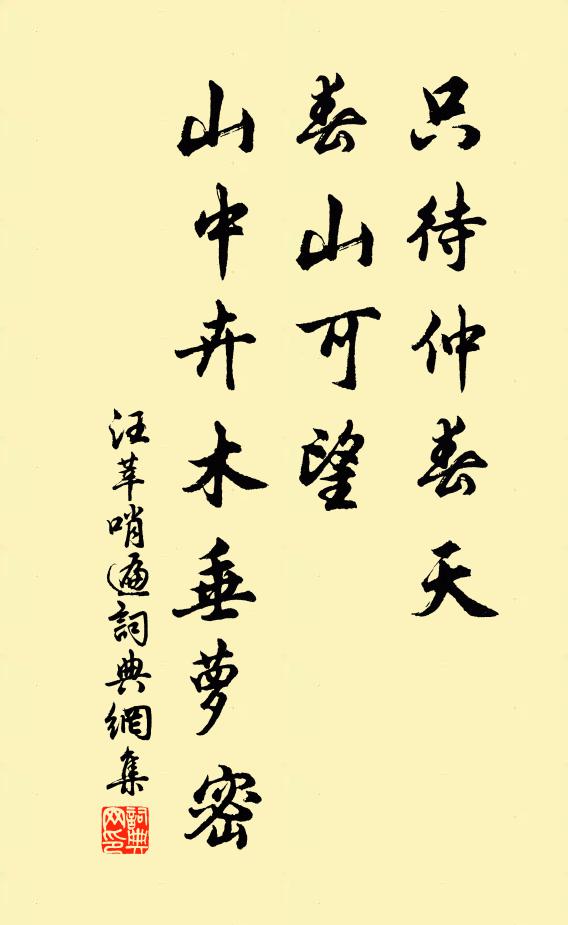 只待仲春天
春山可望
山中卉木垂萝密
汪莘哨遍詞典網集
詞典网印